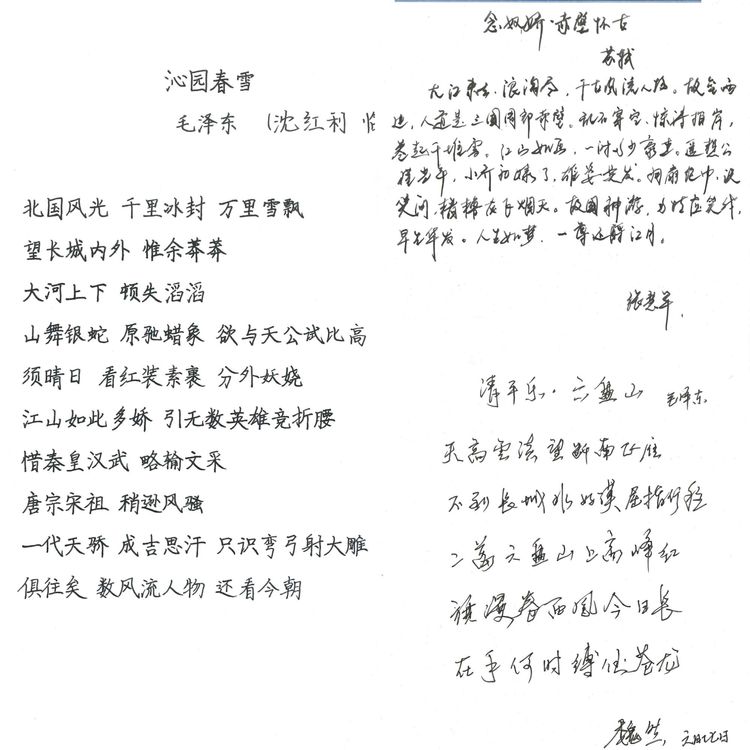 沁园春雪
毛泽东 (沈红利 临
北国风光 千里冰封 万里雪飘
望长城内外 惟余莽莽
大河上下 顿失滔滔
山舞银蛇 原驰蜡象 欲与天公试比高
须晴日 看红装素裹 分外妖娆
江山如此多娇 引无数英雄竞折腰
惜秦皇汉武 略输文采
唐宗宋祖 稍逊风骚
一代天骄 成吉思汗 只识弯弓射大雕
俱往矣 数风流人物 还看今朝
念奴娇·赤壁怀古
苏轼
大江东去,浪淘尽,千古风流人物。故垒西
边,人道是三国周郎赤壁。乱石穿空,惊涛拍岸,
卷起千堆雪。江山如画,一时多少豪杰。遥想公
瑾当年,小乔初嫁了,雄姿英发。羽扇纶巾,谈
笑间,樯橹灰飞烟灭。故国神游,多情应笑我,
早生华发。人生如梦,一尊还酹江月。
清平乐·六盘山 毛泽东
天高云淡望断南飞雁
不到长城非好汉屈指行程
二万六盘山上高峰红
旗漫卷西风今日长
在手何时缚住苍龙